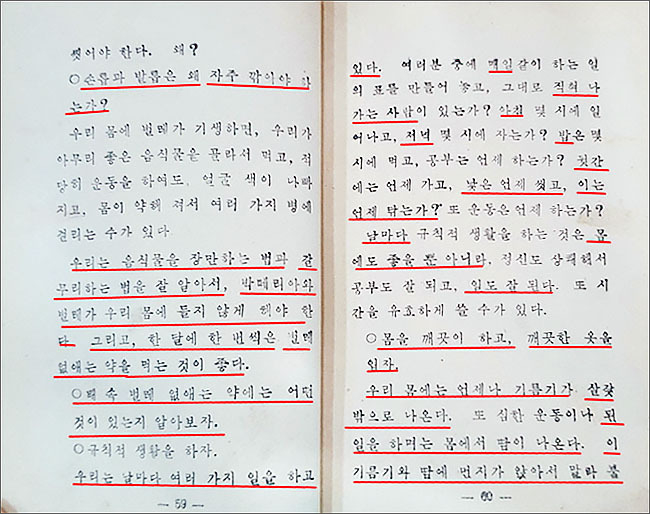 씻어야 한다. 왜?
○손톱과 발톱은 왜 자주 깎아야 하
는가?
우리 몸에 벌레가 기생하면, 우리가
아무리 좋은 음식물을 골라서 먹고, 적
당히 운동을 하여도 얼굴 색이 나빠
지고, 몸이 약해 져서 여러 가지 병에
걸리는 수가 있다
우리는 음식물을 장만하는 법과 간
무리하는 법을 잘 알아서, 박테리아와
벌레가 우리 몸에 들지 않게 해야 한
다 그리고, 한 달에 한 번씩은 벌레
없애는 약을 먹는 것이 좋다.
○배 속 벌레 없애는 약에는 어떤
것이 있는지 알아보자.
○규칙적 생활을 하자.
우리는 날마다 여러 가지 일을 하고
— 59 —
있다. 여러분 중에 매일같이 하는 일
의 표를 만들어 놓고, 그대로 직혀 나
가는 사람이 있는가? 아침 몇 시에 일
어나고, 저녁 몇 시에 자는가? 밥은 몇
시에 먹고, 공부는 언제 하는가? 뒷간
에는 언제 가고, 낯은 언제 씻고, 이는
언제 닦는가? 또 운동은 언제 하는가?
날마다 규칙적 생활을 하는 것은 몸
에도 좋을 뿐 아니라, 정신도 상쾌해서
공부도 잘 되고, 일도 잘 된다. 또 시
간을 유효하게 쓸 수가 있다.
○몸을 깨끗이 하고, 깨끗한 옷을
입자.
우리 몸에는 언제나 기름기가 살갗
밖으로 나온다. 또 심한 운동이나 된
일을 하며는 몸에서 땀이 나온다. 이
기름기와 땀에 먼지가 앉아서 말라 붙
— 60 —